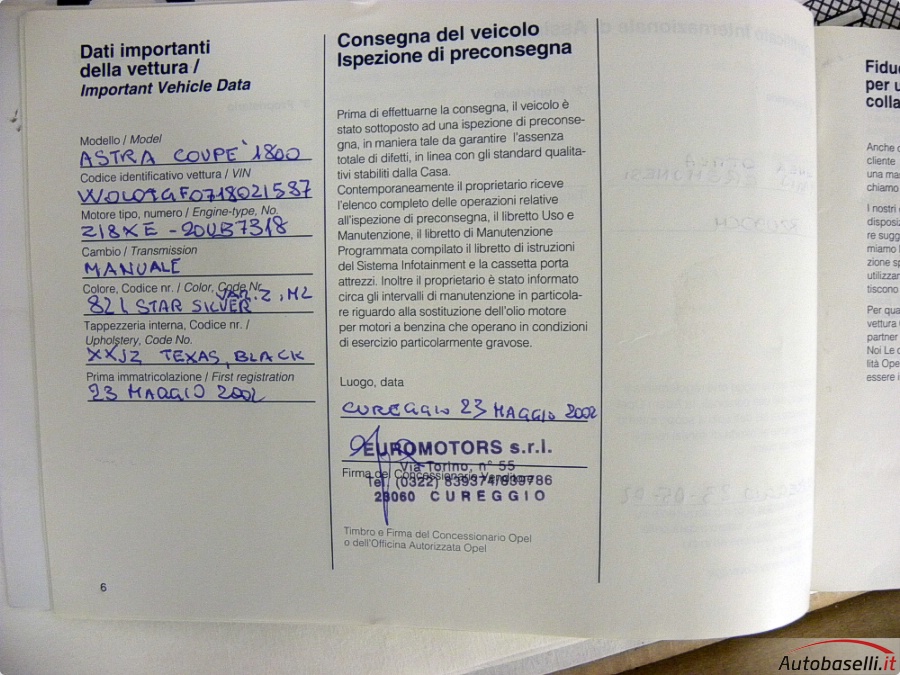 Dati importanti
della vettura /
Important Vehicle Data
Modello / Model
ASTRA COUPE' 1800
Codice identificativo vettura / VIN
WOL0TGF0718021587
Motore tipo, numero / Engine-type, No.
Z18XE - 20UB7318
Cambio / Transmission
MANUALE
Colore, Codice nr. / Color, Code Nr.
82L STAR SILVER VAR. 2, M2
Tappezzeria interna, Codice nr. /
Upholstery, Code No.
XXJZ TEXAS, BLACK
Prima immatricolazione / First registration
23 MAGGIO 2002
6
Consegna del veicolo
Ispezione di preconsegna
Prima di effettuarne la consegna, il veicolo è
stato sottoposto ad una ispezione di preconse-
gna, in maniera tale da garantire l'assenza
totale di difetti, in linea con gli standard qualita-
tivi stabiliti dalla Casa.
Contemporaneamente il proprietario riceve
l'elenco completo delle operazioni relative
all'ispezione di preconsegna, il libretto Uso e
Manutenzione, il libretto di Manutenzione
Programmata compilato il libretto di istruzioni
del Sistema Infotainment e la cassetta porta
attrezzi. Inoltre il proprietario è stato informato
circa gli intervalli di manutenzione in particola-
re riguardo alla sostituzione dell'olio motore
per motori a benzina che operano in condizioni
di esercizio particolarmente gravose.
Luogo, data
CUREGGIO 23 MAGGIO 2002
EUROMOTORS s.r.l.
Via Torino, n° 55
Firma del Concessionario Venditore
Tel. (0322) 839374/839786
28060 CUREGGIO
Timbro e Firma del Concessionario Opel
o dell'Officina Autorizzata Opel
Fidu
per u
colla
Anche
cliente
una ma
chiamo
I nostri
disposiz
re sugg
miamo
zione sp
utilizzan
tiscono
Per qua
vettura
partner
Noi Le
lità Ope
essere i
Autobaselli.it